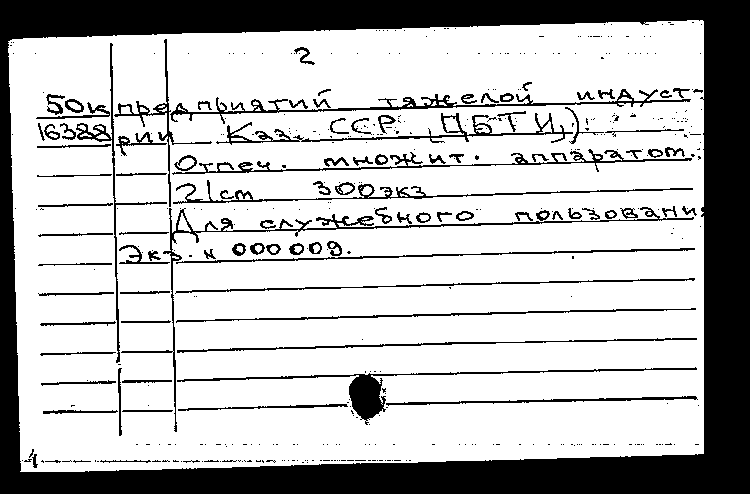 2
50к предприятий тяжелой индуст-
16328 рии Каз. ССР. (ЦБТИ,).
Отпеч. множит. аппаратом.
21cm 300экз
Для служебного пользования
Экз. н 000009.
4